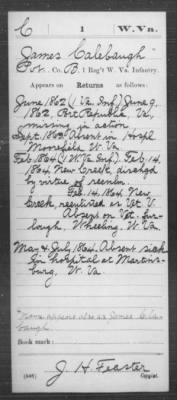 C 1 W.Va.
James Calebaugh
Pvt. Co. B, 1 Reg't W. Va. Infantry.
Appears on Returns as follows:
June/1862 (1 Va. Inf) June 9,
1862, Port Republic, Va,
missing in action
Sept. 1862 Absent in Hospl
Moorefield, W. Va
Feb/1864 (1 W. Va Inf) Feb. 14,
1864, New Creek, dischgd
by virtue of reenlm.
Feb. 14, 1864, New
Creek, reenlisted as Vet. V.
Absent on Vet. fur-
lough, Wheeling, W. Va.
May & July/1864. Absent sick
in hospital at Martins-
burg, W. Va
Name appears also as James
baugh
Book mark:
J. H. Feaster
(546) Copyist.